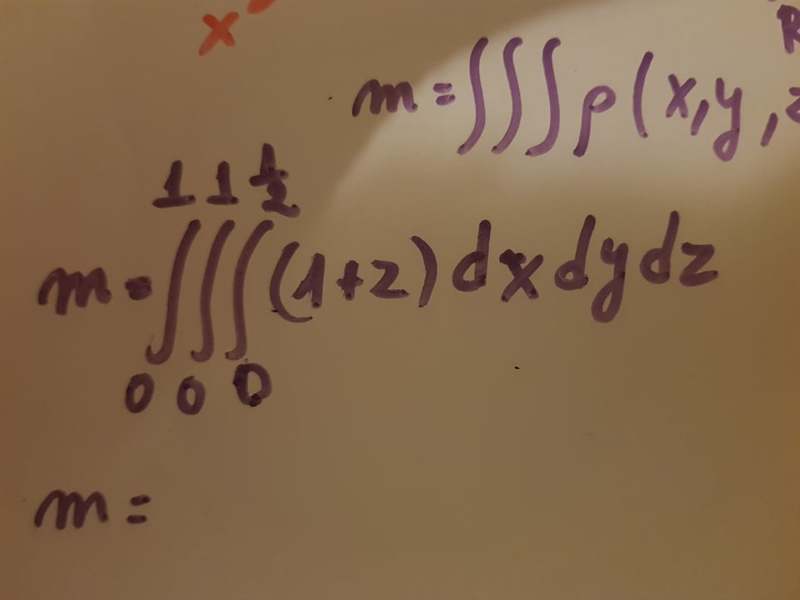 x
m = ∫∫∫ ρ(x,y,z
m = ∫₀¹ ∫₀¹ ∫₀^{1/2} (1+z) dx dy dz
m =